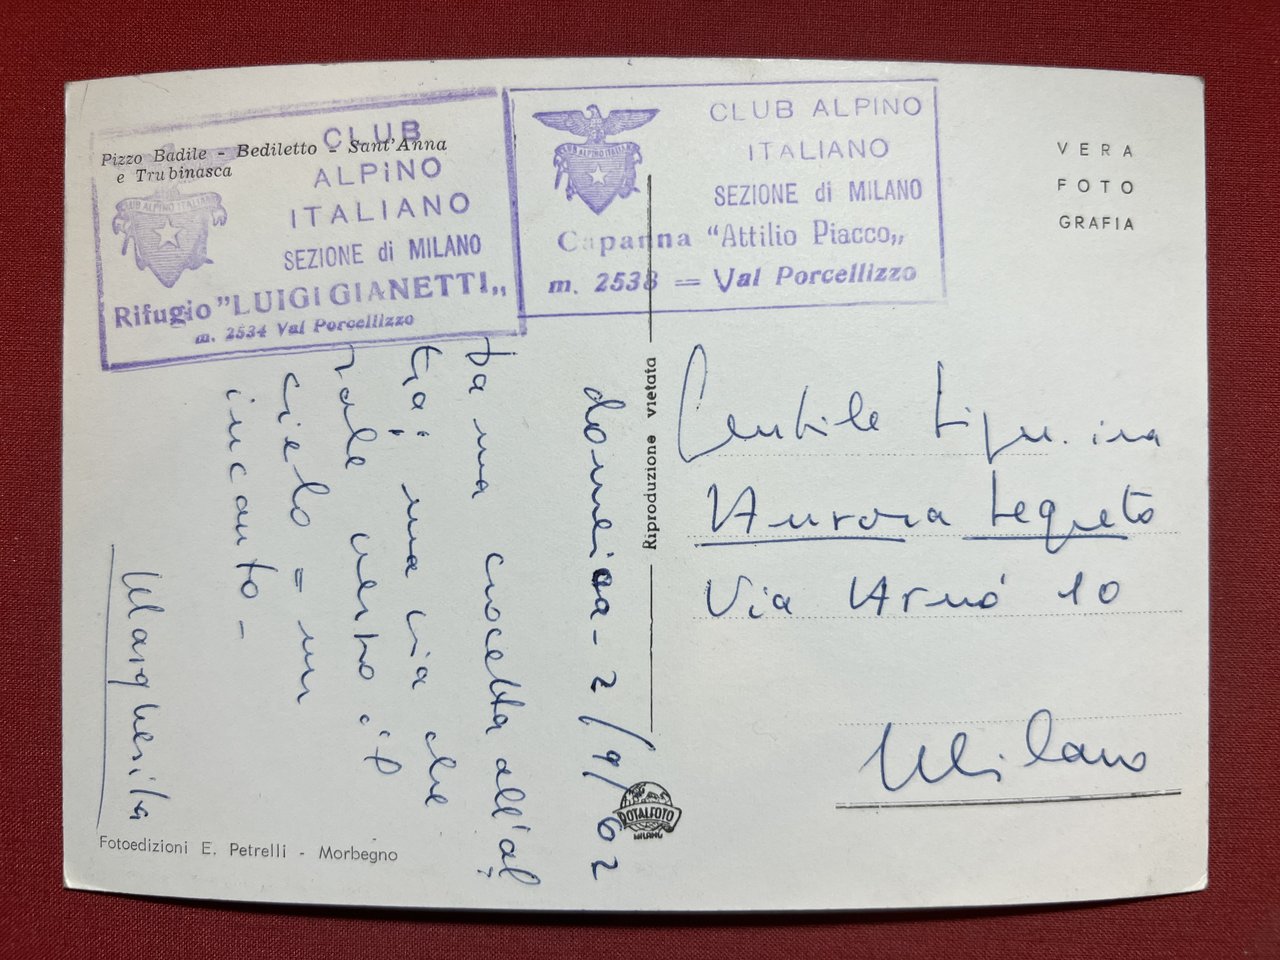 Pizzo Badile - Bediletto - Sant'Anna
e Trubinasca
CLUB
ALPINO
ITALIANO
SEZIONE di MILANO
Rifugio "LUIGI GIANETTI„
m. 2534 Val Porcellizzo
CLUB ALPINO ITALIANO
CLUB ALPINO
ITALIANO
SEZIONE di MILANO
Capanna "Attilio Piacco„
m. 2538 = Val Porcellizzo
VERA
FOTO
GRAFIA
domenica - 2/9/62
Da una crocetta all'al
tra; ma via che
vale verso il
cielo = un
incanto -
Margherita
Riproduzione vietata
Gentile Sig.ina
Aurora Legreto
Via Arnò 10
Milano
ROTALFOTO
MILANO
Fotoedizioni E. Petrelli - Morbegno